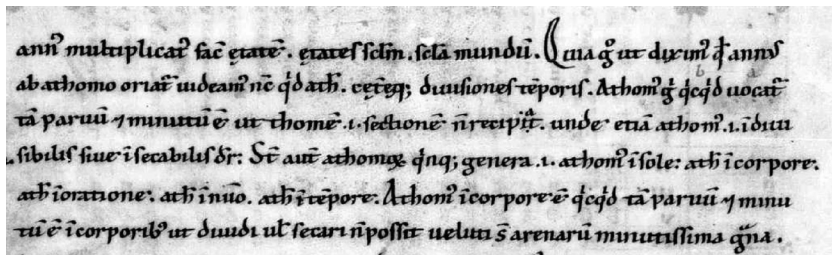 annꝰ multiplicatꝰ fac̄ ętatē. ętates sclm̄. scl̄a mundū. Quia gͦ ut diximꝰ qd̄ annꝰ
ab athomo oriat᷑ uideamꝰ nc̄ qͥd ath̄. cęteęq; diuisiones tēporis. Athomꝰ gͦ qͥcqͥd uocat᷑
tā paruū ⁊ minutū ē ut thomē .i. sectionē n̄ recipiat. unde etiā athomꝰ .i. īdiui
sibilis siue īsecabilis dr̄: St̄ aut̄ athomoꝝ qͥnq; genera .i. athomꝰ ī sole: ath̄ ī corpore.
ath̄ ī oratione. ath̄ ī nūo. ath̄ ī tēpore. Athomꝰ ī corpore ē qͥcqͥd tā paruū ⁊ minu
tū ē ī corporibꝰ ut diuidi ul̄ secari n̄ possit ueluti s̄ arenarū minutissima gᷓna.